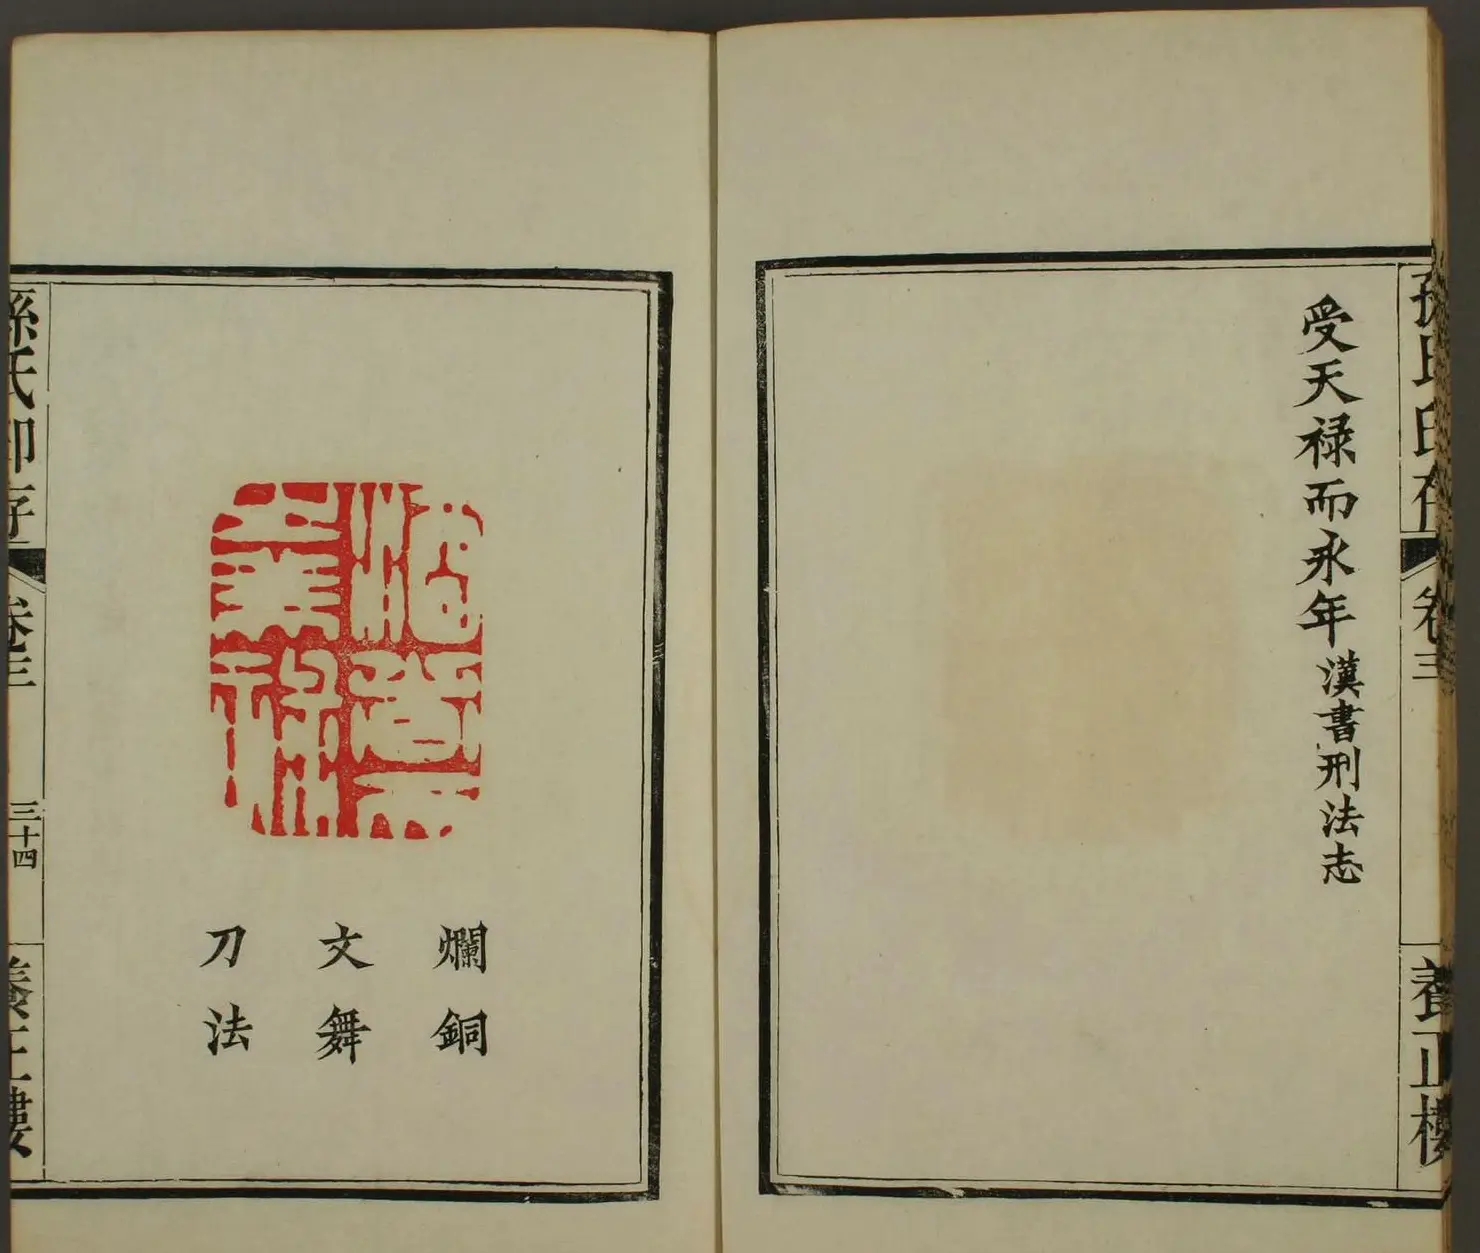 孫氏印存
卷三
養正樓
受天禄而永年漢書刑法志
爛銅
文舞
刀法
孫氏印存
卷三
三十四
養正樓